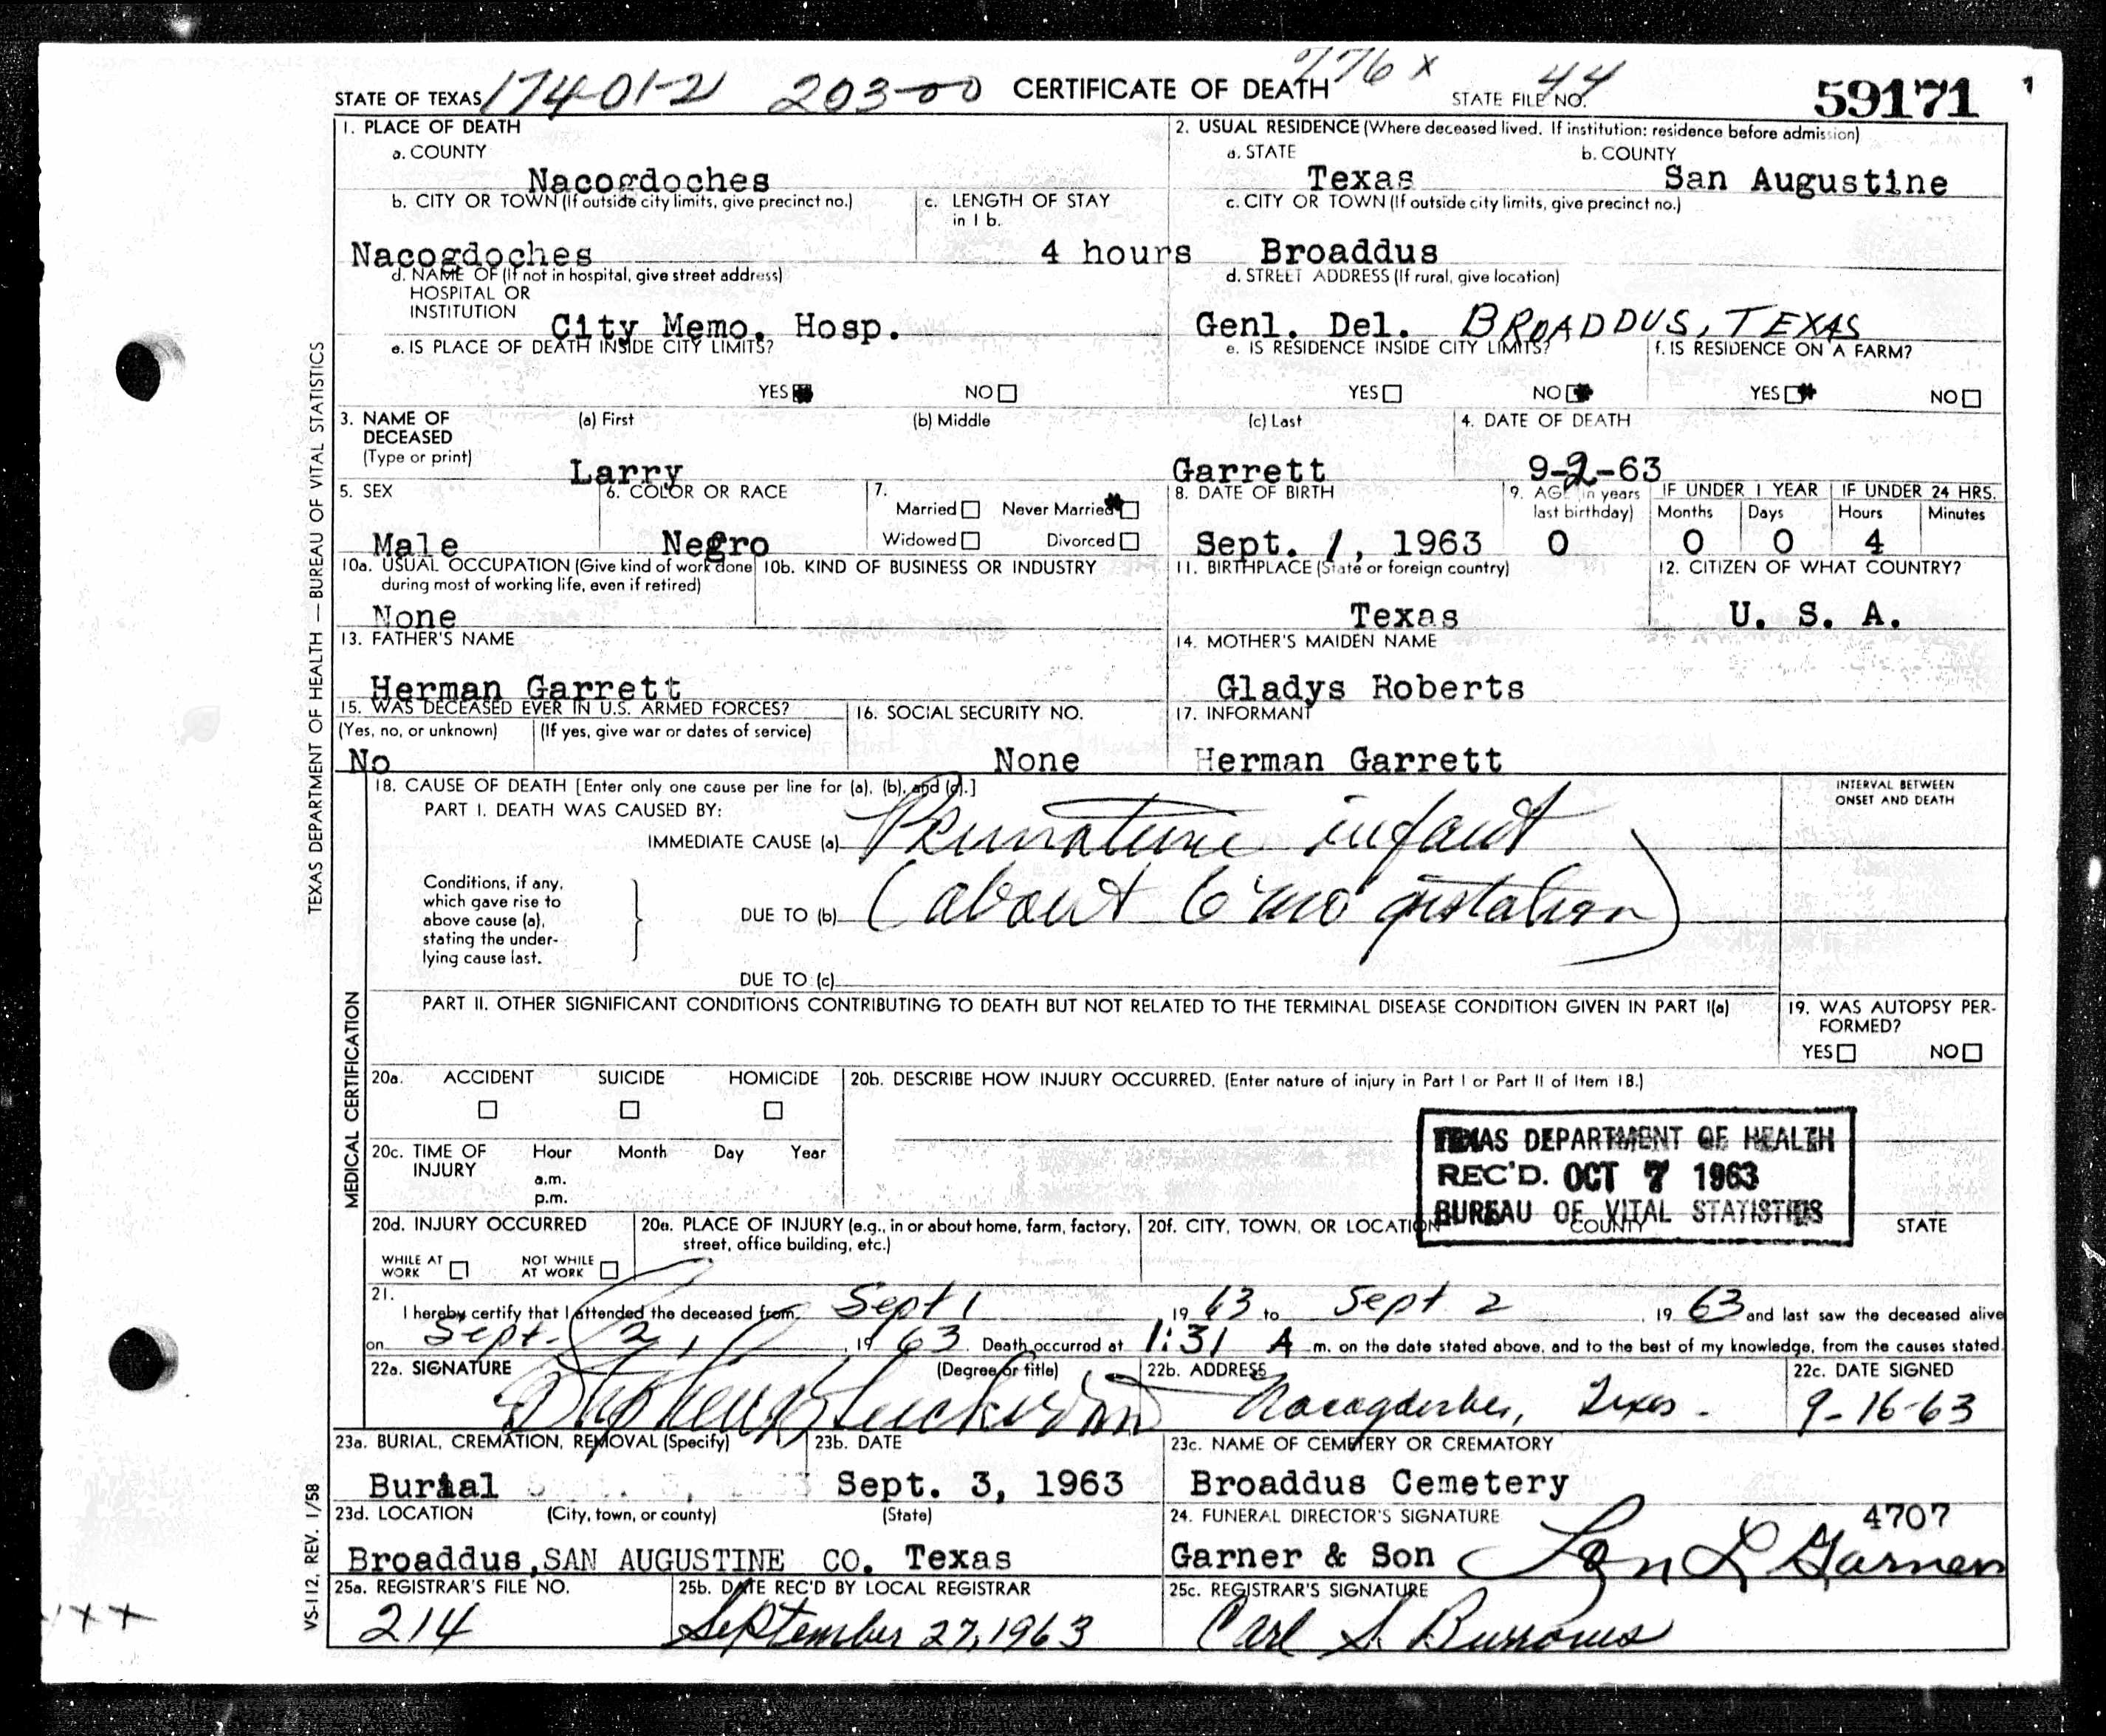 STATE OF TEXAS 174-01-2 203-00 CERTIFICATE OF DEATH 776 x STATE FILE NO. 44 59171
1. PLACE OF DEATH
a. COUNTY
Nacogdoches
2. USUAL RESIDENCE (Where deceased lived. If institution: residence before admission)
a. STATE b. COUNTY
Texas San Augustine
b. CITY OR TOWN (If outside city limits, give precinct no.)
Nacogdoches
c. LENGTH OF STAY
in 1 b.
4 hours
c. CITY OR TOWN (If outside city limits, give precinct no.)
Broaddus
d. NAME OF (If not in hospital, give street address)
HOSPITAL OR
INSTITUTION
City Memo. Hosp.
d. STREET ADDRESS (If rural, give location)
Genl. Del. BROADDUS, TEXAS
e. IS PLACE OF DEATH INSIDE CITY LIMITS?
YES NO
e. IS RESIDENCE INSIDE CITY LIMITS?
YES NO
f. IS RESIDENCE ON A FARM?
YES NO
3. NAME OF
DECEASED
(Type or print)
(a) First (b) Middle (c) Last
Larry Garrett
4. DATE OF DEATH
9-2-63
5. SEX
Male
6. COLOR OR RACE
Negro
7.
Married Never Married
Widowed Divorced
8. DATE OF BIRTH
Sept. 1, 1963
9. AGE (In years
last birthday)
0
IF UNDER 1 YEAR
Months Days
0 0
IF UNDER 24 HRS.
Hours Minutes
4
10a. USUAL OCCUPATION (Give kind of work done
during most of working life, even if retired)
None
10b. KIND OF BUSINESS OR INDUSTRY
11. BIRTHPLACE (State or foreign country)
Texas
12. CITIZEN OF WHAT COUNTRY?
U. S. A.
13. FATHER'S NAME
Herman Garrett
14. MOTHER'S MAIDEN NAME
Gladys Roberts
15. WAS DECEASED EVER IN U.S. ARMED FORCES?
(Yes, no, or unknown) (If yes, give war or dates of service)
No
16. SOCIAL SECURITY NO.
None
17. INFORMANT
Herman Garrett
18. CAUSE OF DEATH [Enter only one cause per line for (a), (b), and (c).]
PART I. DEATH WAS CAUSED BY:
IMMEDIATE CAUSE (a) Premature infant
Conditions, if any,
which gave rise to
above cause (a),
stating the under-
lying cause last.
DUE TO (b) (about 6 mo gestation)
DUE TO (c)
INTERVAL BETWEEN
ONSET AND DEATH
PART II. OTHER SIGNIFICANT CONDITIONS CONTRIBUTING TO DEATH BUT NOT RELATED TO THE TERMINAL DISEASE CONDITION GIVEN IN PART I(a)
19. WAS AUTOPSY PER-
FORMED?
YES NO
20a. ACCIDENT SUICIDE HOMICIDE
20b. DESCRIBE HOW INJURY OCCURRED. (Enter nature of injury in Part I or Part II of Item 18.)
20c. TIME OF
INJURY
Hour Month Day Year
a.m.
p.m.
TEXAS DEPARTMENT OF HEALTH
REC'D. OCT 7 1963
BUREAU OF VITAL STATISTICS
20d. INJURY OCCURRED
WHILE AT
WORK
NOT WHILE
AT WORK
20e. PLACE OF INJURY (e.g., in or about home, farm, factory,
street, office building, etc.)
20f. CITY, TOWN, OR LOCATION COUNTY STATE
21.
I hereby certify that I attended the deceased from Sept 1 1963 to Sept 2, 1963 and last saw the deceased alive
on Sept. 2, 1963. Death occurred at 1:31 A m. on the date stated above, and to the best of my knowledge, from the causes stated.
22a. SIGNATURE (Degree or title)
22b. ADDRESS
Nacogdoches, Texas.
22c. DATE SIGNED
9-16-63
23a. BURIAL, CREMATION, REMOVAL (Specify)
Burial
23b. DATE
Sept. 3, 1963
23c. NAME OF CEMETERY OR CREMATORY
Broaddus Cemetery
23d. LOCATION (City, town, or county) (State)
Broaddus, SAN AUGUSTINE CO. Texas
24. FUNERAL DIRECTOR'S SIGNATURE 4707
Garner & Son Lon L Garner
25a. REGISTRAR'S FILE NO.
214
25b. DATE REC'D BY LOCAL REGISTRAR
September 27, 1963
25c. REGISTRAR'S SIGNATURE
Carl S. Burrows
TEXAS DEPARTMENT OF HEALTH — BUREAU OF VITAL STATISTICS
MEDICAL CERTIFICATION
VS-112, REV. 1/58